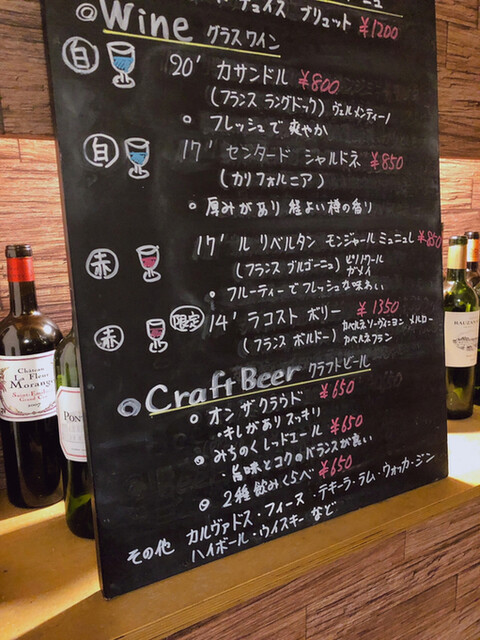 ュイス ブリュット ¥1200
◎Wine グラスワイン
白 20' カサンドル ¥800
(フランス ラングドック) ヴェルメンティーノ
○ フレッシュで爽やか
白 17' センタード シャルドネ ¥850
(カリフォルニア)
○ 厚みがあり 程よい樽の香り
赤 17' ル リベルタン モンジャール ミュニュレ ¥850
(フランス ブルゴーニュ) ピノノワール
ガメイ
○ フルーティーでフレッシュな味わい
赤 限定 14' ラコスト ボリー ¥1350
(フランス ボルドー) カベルネソーヴィニヨン メルロー
カベルネフラン
◎Craft Beer クラフトビール
○ オン ザ クラウド ¥650
・キレがありスッキリ
○ みちのくレッドエール ¥650
・旨味とコクのバランスが良い
○ 2種飲みくらべ ¥650
その他 カルヴァドス・フィーヌ・テキーラ・ラム・ウォッカ・ジン
ハイボール・ウイスキー など
Château
La Fleur
Morange
Saint-Emilion
Grand Cru
2007
PONT